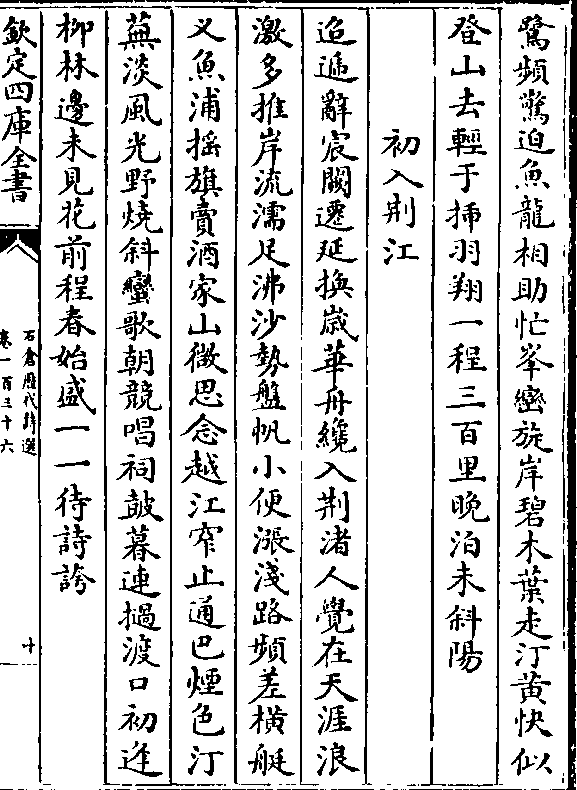 鷺頻驚迫魚龍相助忙峯巒旋岸碧木葉走汀黃快似
登山去輕于揷羽翔一程三百里晚泊未斜陽
初入荆江
迢遞辭宸闕遷延換歳華舟纔入荆渚人覺在天涯浪
激多摧岸流濡足沸沙勢盤帆小便漲淺路頻差横艇
乂魚浦摇旗賣酒家山微思念越江窄止通巴煙色汀
蕪淡風光野燒斜蠻歌朝競唱祠鼓暮連撾渡口初逢
柳林邊未見花前程春始盛一一待詩誇
欽定四庫全書
石倉歴代詩選
卷一百三十六
十